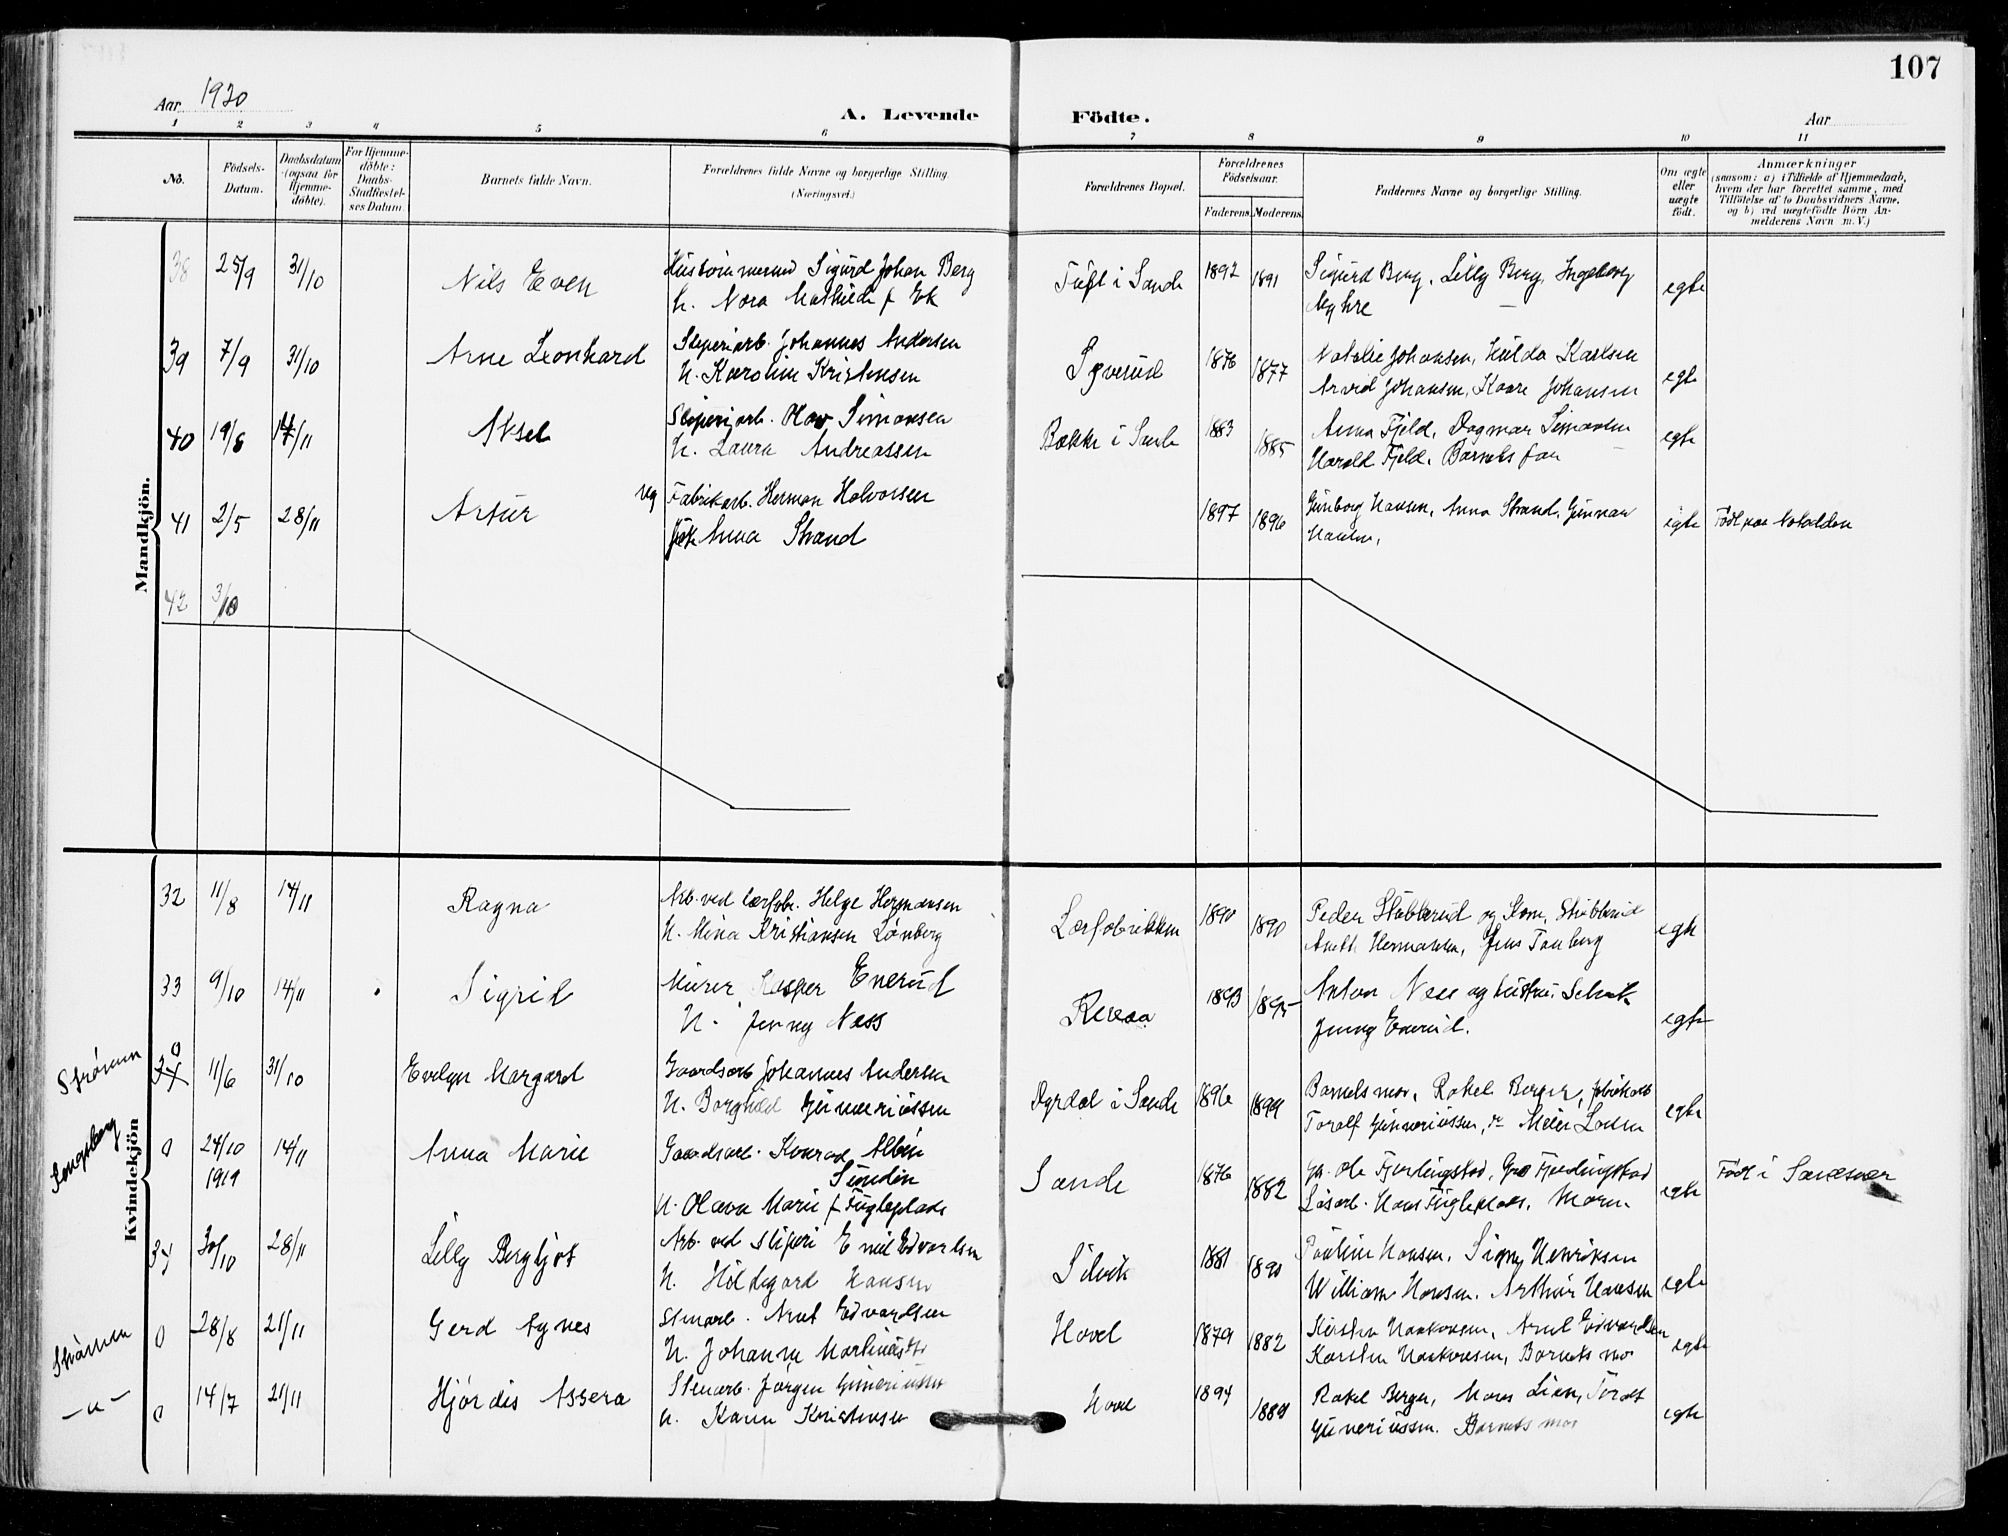 107
Aar 1920
A. Levende Födte.
Aar
1 2 3 4 5 6 7 8 9 10 11
No.
Födsels-
Datum.
Daabsdatum
(ogsaa for
Hjemme-
döbte).
For Hjemme-
döbte:
Daabs-
Stadfæstel-
ses Datum.
Barnets fulde Navn.
Forældrenes fulde Navne og borgerlige Stilling.
(Næringsvei.)
Forældrenes Bopæl.
Forældrenes
Födselsaar.
Faderens. Moderens.
Faddernes Navne og borgerlige Stilling.
Om ægte
eller
uægte
födt.
Anmærkninger
(saasom: a) i Tilfælde af Hjemmedaab,
hvem der har forrettet samme, med
Tilföielse af to Daabsvidners Navne,
og b) ved uægtefödte Börn An-
melderens Navn m. V.)
Mandkjön.
38 25/9 31/10 Nils Even
Sigurd Johan Berg
H. Nora Mathilde f Ek
Tuft i Sande 1892 1891
Sigurd Berg, Lilly Berg, Ingeborg
Nyhre
egte
39 7/9 31/10 Arne Leonhard
Sliperiarb. Johannes Andersen
H. Karoline Kristensen
Syverud 1876 1877
Natalie Johansen, Hulda Karlsen
Arvid Johansen, Kaare Johansen
egte
40 19/8 14/11 Aksel
Sliperiarb. Olav Simonsen
H. Laura Andreassen
Bække i Sande 1883 1885
Anna Fjeld, Dagmar Simonsen
Harald Fjeld, Barnets far
egte
41 2/5 28/11 Artur
Fabrikarb. Herman Halvorsen
Anna Strand
1897 1896
Gunborg Hansen, Anna Strand, Gunnar
Hansen,
Født paa Notodden
42 3/10
Kvindekjön
32 11/8 14/11 Ragna
Arb. ved lærfabr. Helge Hermansen
H. Mina Kristiansen Lønberg
Lærfabrikken 1890 1890
Peder Stubberud og Kone, Stubberud
Hermansen, Jens Tonberg
egte
33 9/10 14/11 Sigrid
Murer Kasper Enerud
H. Jenny Næss
Revaa 1893 1895
Anton Næss og hustru,
Jenny Enerud.
egte
Strømm
0
34 11/6 31/10 Evelyn Margard
Gaardsarb Johannes Andersen
H. Borghild Gunneriussen
Dyrdal i Sande 1896 1899
Barnets mor, Rakel Berger, fabrikarb
Toralf Gunneriussen,
egte
0 24/10 14/11 Anna Marie
1919
Gaardsarb. Konrad Albin
Sundin
H. Olava Marie f Fugleplads
Sande 1876 1882
Ole Fjerdingstad, Gro Fjerdingstad
Løsarb. Hans Fugleplads, Moren
egte
Født i Sandsvær
34 30/10 28/11 Lilly Bergljot
Arb. ved sliperi Emil Edvardsen
H. Hildegard Hansen
Selvik 1881 1890
Pauline Hansen, Signy Henriksen
William Hansen, Arthur Hansen
egte
Strømm
0 28/8 21/11 Gerd Agnes
Stenarb. Arnt Edvardsen
H. Johanne
Hovel 1879 1882
Kirsten Haakonsen, Arnt Edvardsen
Karsten Haakonsen, Barnets mor
egte
— " —
0 14/7 21/11 Hjørdis Assera
Stenarb. Jørgen Gunneriussen
H. Karen Kristensen
Hovel 1894 1889
Rakel Berger, Hans Lien, Toralf
Guneriussen. Barnets mor
egte